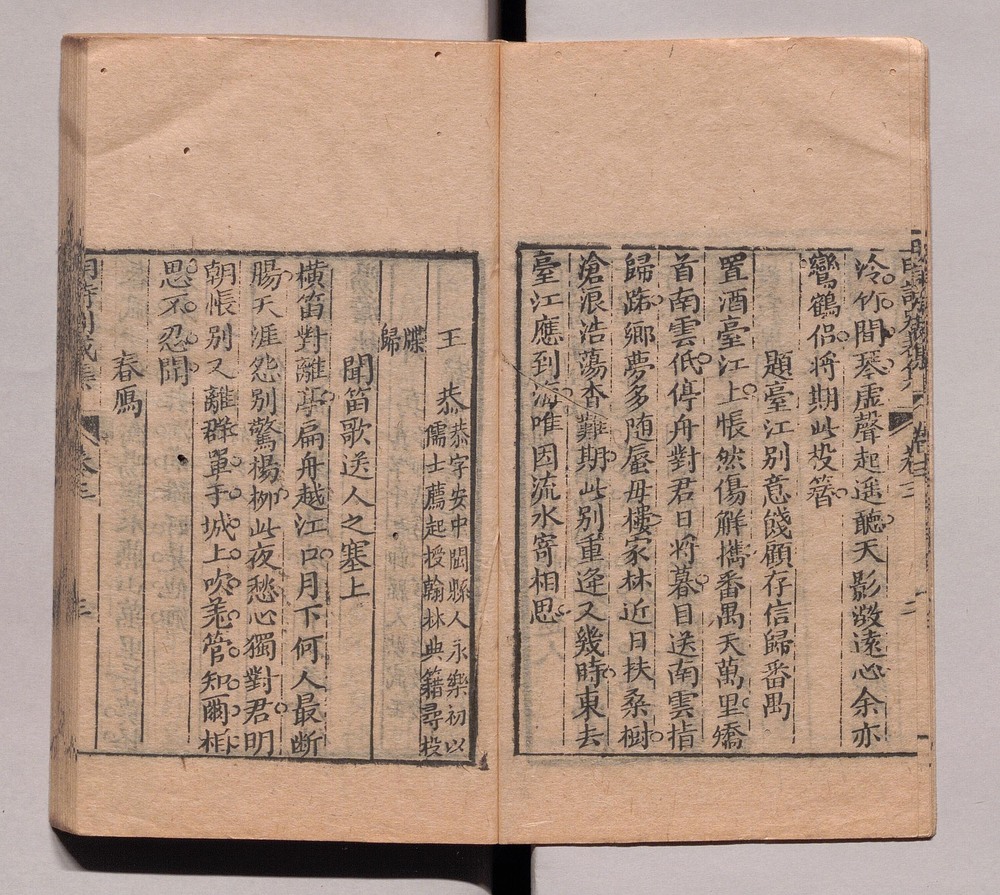 泠竹間琴虛聲起遥聽天影激遠心余亦
鸞鶴侣將期此投簪
題臺江别意餞顧存信歸番禺
置酒臺江上悵然傷解携番禺天萬里矯
首南雲低停舟對君日將暮目送南雲指
歸路鄉夢多随蜃母樓家林近日扶桑樹
滄浪浩蕩杳難期此别重逢又幾時東去
臺江應到海唯因流水寄相思
王恭
恭字安中閩縣人永樂初以
儒士薦起授翰林典籍尋投
牒
歸
聞笛歌送人之塞上
横笛對離亭扁舟越江口月下何人最断
腸天涯怨别驚楊柳此夜愁心獨對君明
朝悵别又離群單于城上吹羌管知爾相
思不忍聞
春鴈
卷三